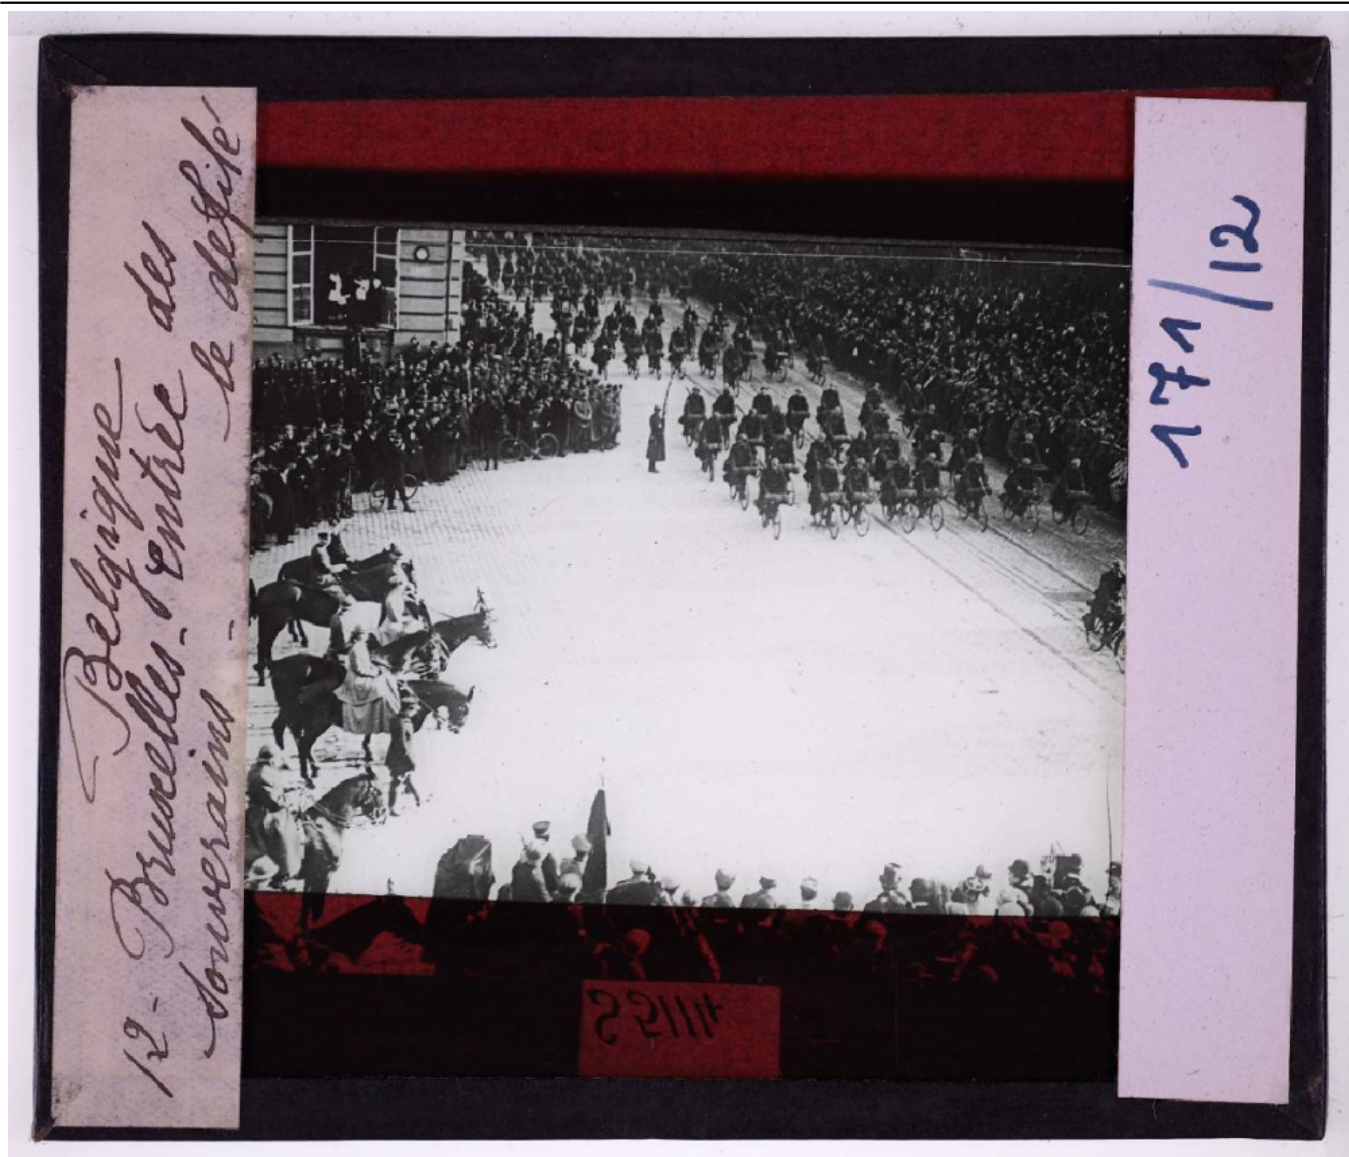 Belgique
12 - Bruxelles - Entrée des
souverains - le défilé
171/12
S 5114